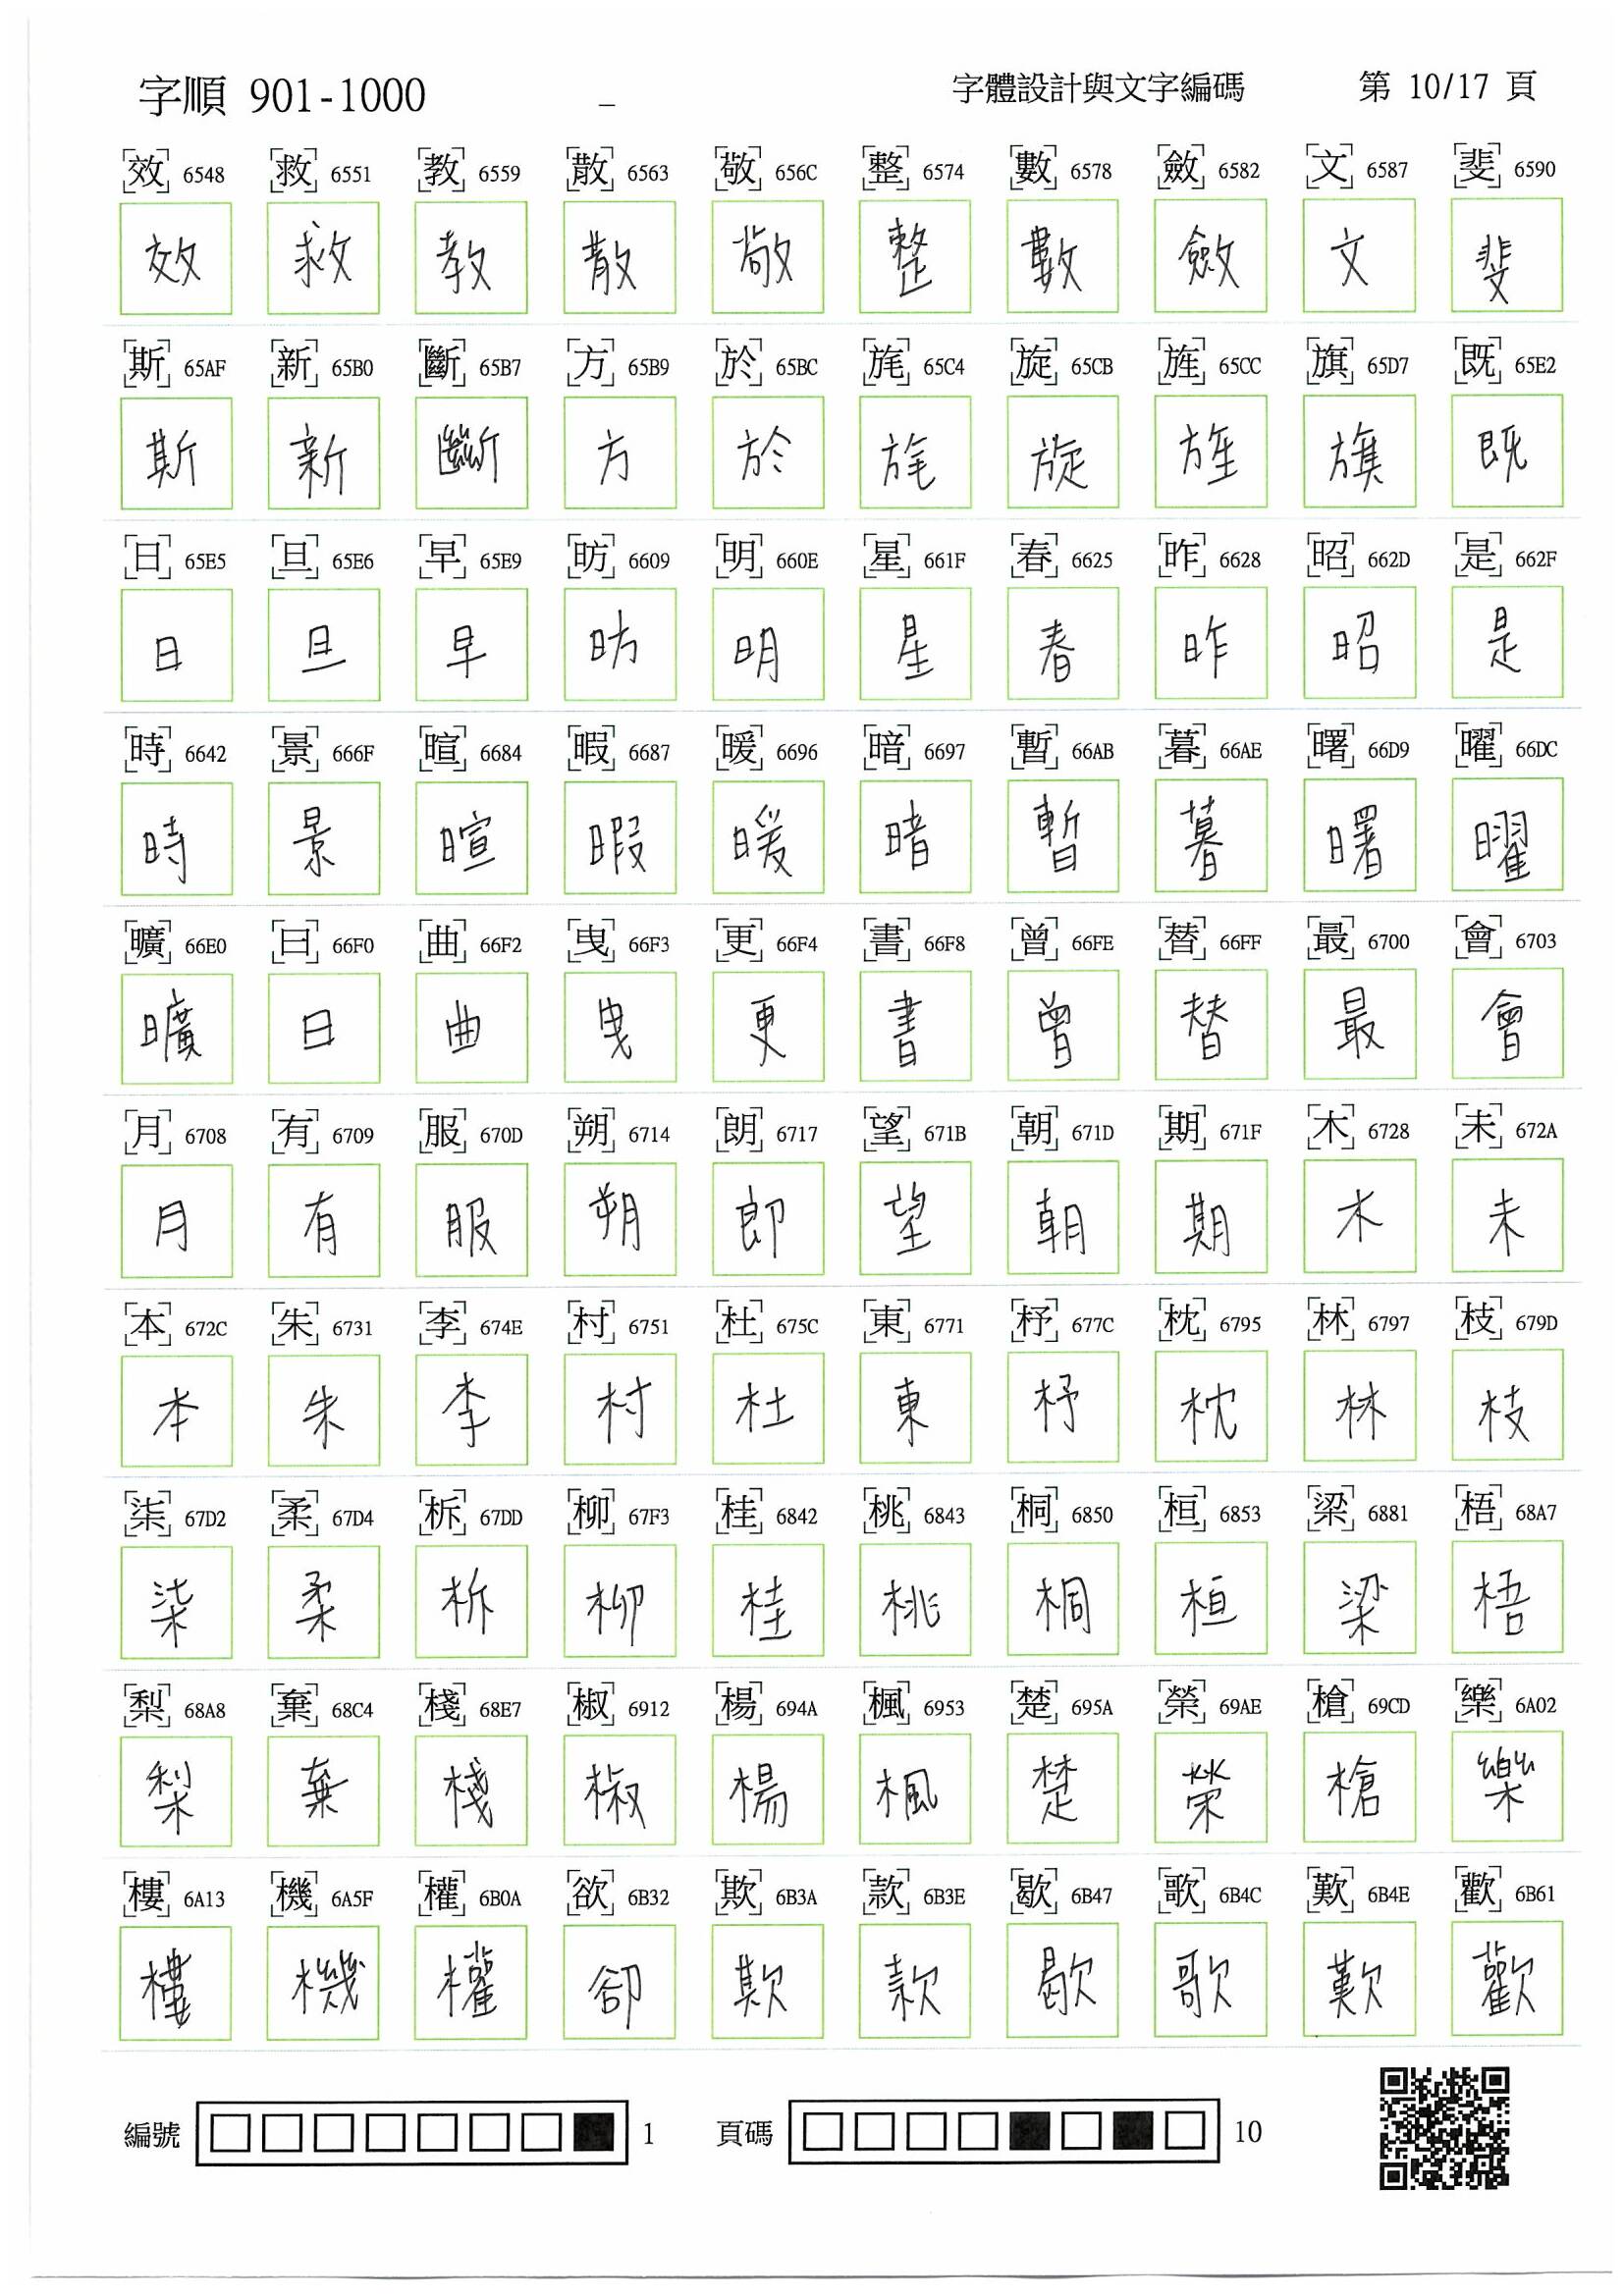 字順 901-1000 _ 字體設計與文字編碼 第 10/17 頁
效 6548 救 6551 教 6559 散 6563 敬 656C 整 6574 數 6578 斂 6582 文 6587 斐 6590
效 救 教 散 敬 整 數 斂 文 斐
斯 65AF 新 65B0 斷 65B7 方 65B9 於 65BC 旄 65C4 旋 65CB 旌 65CC 旗 65D7 既 65E2
斯 新 斷 方 於 旄 旋 旌 旗 既
日 65E5 旦 65E6 早 65E9 昉 6609 明 660E 星 661F 春 6625 昨 6628 昭 662D 是 662F
日 旦 早 昉 明 星 春 昨 昭 是
時 6642 景 666F 暄 6684 暇 6687 暖 6696 暗 6697 暫 66AB 暮 66AE 曙 66D9 曜 66DC
時 景 暄 暇 暖 暗 暫 暮 曙 曜
曠 66E0 曰 66F0 曲 66F2 曳 66F3 更 66F4 書 66F8 曾 66FE 替 66FF 最 6700 會 6703
曠 曰 曲 曳 更 書 曾 替 最 會
月 6708 有 6709 服 670D 朔 6714 朗 6717 望 671B 朝 671D 期 671F 木 6728 未 672A
月 有 服 朔 郎 望 朝 期 木 未
本 672C 朱 6731 李 674E 村 6751 杜 675C 東 6771 杼 677C 枕 6795 林 6797 枝 679D
本 朱 李 村 杜 東 杼 枕 林 枝
柒 67D2 柔 67D4 柝 67DD 柳 67F3 桂 6842 桃 6843 桐 6850 桓 6853 梁 6881 梧 68A7
柒 柔 柝 柳 桂 桃 桐 桓 梁 梧
梨 68A8 棄 68C4 棧 68E7 椒 6912 楊 694A 楓 6953 楚 695A 榮 69AE 槍 69CD 樂 6A02
梨 棄 棧 椒 楊 楓 楚 榮 槍 樂
樓 6A13 機 6A5F 權 6B0A 欲 6B32 欺 6B3A 款 6B3E 歇 6B47 歌 6B4C 歎 6B4E 歡 6B61
樓 機 權 卻 欺 款 歇 歌 歎 歡
編號 1 頁碼 10